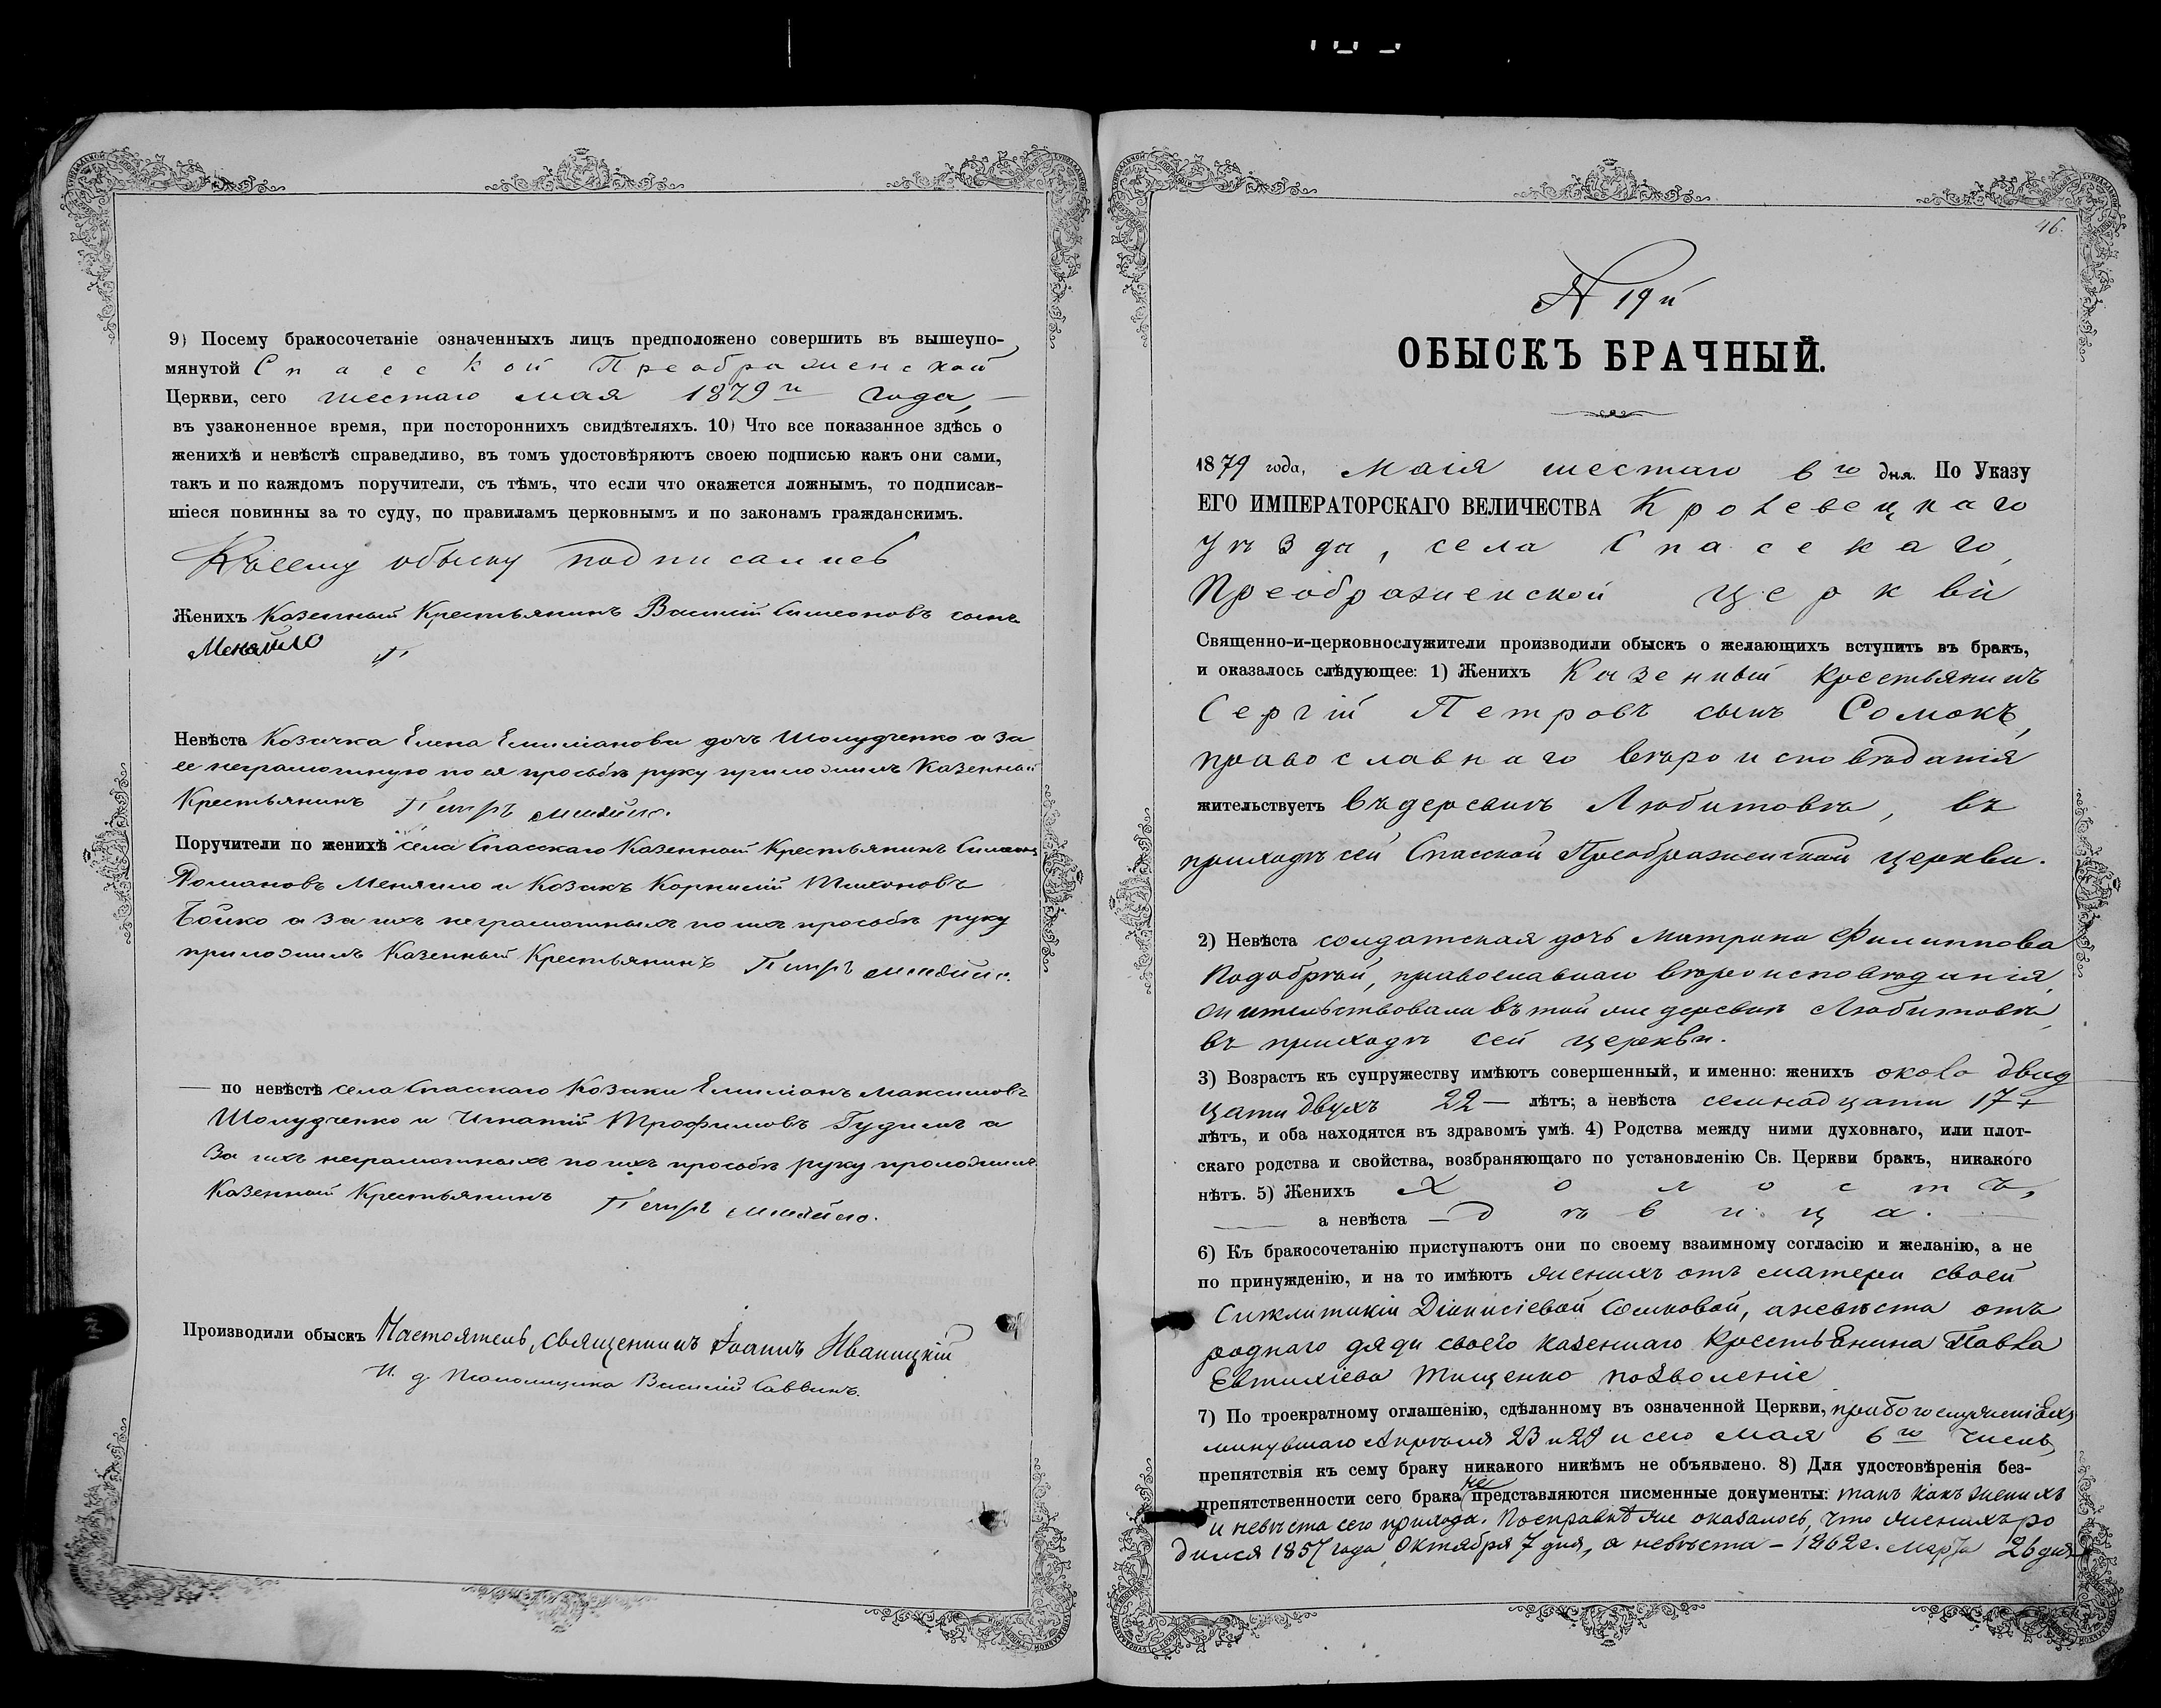 9) Посему бракосочетаніе означенныхъ лицъ предположено совершить въ вышеупо-
мянутой Спасской Преображенской
Церкви, сего шестаго мая 1879 го года,
въ узаконенное время, при постороннихъ свидѣтеляхъ. 10) Что все показанное здѣсь о
женихѣ и невѣстѣ справедливо, въ томъ удостовѣряютъ своею подписью какъ они сами,
такъ и по каждомъ поручители, съ тѣмъ, что если что окажется ложнымъ, то подписав-
шіеся повинны за то суду, по правиламъ церковнымъ и по законамъ гражданскимъ.
Къ сему обыску подписались
Женихъ Казенный Крестьянинъ Василій Симеоновъ сынъ
Меняйло
Невѣста Козачка Елена Емиліанова дочь Шолудченко а за
ее неграмотную по ея просьбѣ руку приложилъ Казенный
Крестьянинъ Петръ Меняйло.
Поручители по женихѣ села Спасскаго Казенный Крестьянинъ Симеонъ
Романовъ Меняйло и Козакъ Корнилій Тихоновъ
Бойко а за ихъ неграмотныхъ по ихъ просьбѣ руку
приложилъ Казенный Крестьянинъ Петръ Меняйло.
— по невѣстѣ села Спасскаго Козаки Емиліанъ Максимовъ
Шолудченко и Игнатій Трофимовъ Гудимъ а
За ихъ неграмотныхъ по ихъ просьбѣ руку приложилъ
Казенный Крестьянинъ Петръ Меняйло.
Производили обыскъ Настоятель, священникъ Іоаннъ Иваницкій
И. д. Псаломщика Василій Саввинъ.
46.
№ 19й
ОБЫСКЪ БРАЧНЫЙ.
1879 года, Маія шестаго 6 го дня. По Указу
ЕГО ИМПЕРАТОРСКАГО ВЕЛИЧЕСТВА Кролевецкаго
Уѣзда, села Спасскаго,
Преображенской церкви
Священно-и-церковнослужители производили обыскъ о желающихъ вступить въ бракъ,
и оказалось слѣдующее: 1) Женихъ Казенный крестьянинъ
Сергій Петровъ сынъ Сомокъ,
православнаго вѣроисповѣданія
жительствуетъ въ деревнѣ Любитовкѣ, въ
приходѣ сей Спасской Преображенской церкви.
2) Невѣста солдатская дочь Матрона Филиппова
Подобрій, православнаго вѣроисповѣданія,
жительствовала въ той же деревнѣ Любитовкѣ,
въ приходѣ сей церкви.
3) Возрастъ къ супружеству имѣютъ совершенный, и именно: женихъ около двад
цати двухъ 22 — лѣтъ; а невѣста семнадцати 17 +
лѣтъ, и оба находятся въ здравомъ умѣ. 4) Родства между ними духовнаго, или плот-
скаго родства и свойства, возбраняющаго по установленію Св. Церкви бракъ, никакого
нѣтъ. 5) Женихъ Холостъ,
а невѣста — дѣвица.
6) Къ бракосочетанію приступаютъ они по своему взаимному согласію и желанію, а не
по принужденію, и на то имѣютъ женихъ отъ матери своей
Сигклитикіи Діонисіевой Сомковой, а невѣста отъ
роднаго дяди своего казеннаго крестьянина Павла
Евтихіева Тищенко позволеніе
7) По троекратному оглашенію, сдѣланному въ означенной Церкви, при богослуженіяхъ
минувшаго Апрѣля 23 и 29 и сего мая 6 го числъ,
препятствія къ сему браку никакого никѣмъ не объявлено. 8) Для удостовѣренія без-
препятственности сего брака не представляются писменные документы: такъ какъ женихъ
и невѣста сего прихода. По справкѣ же оказалось, что женихъ ро
дился 1857 года Октября 7 дня, а невѣста — 1862 г. марта 26 дня